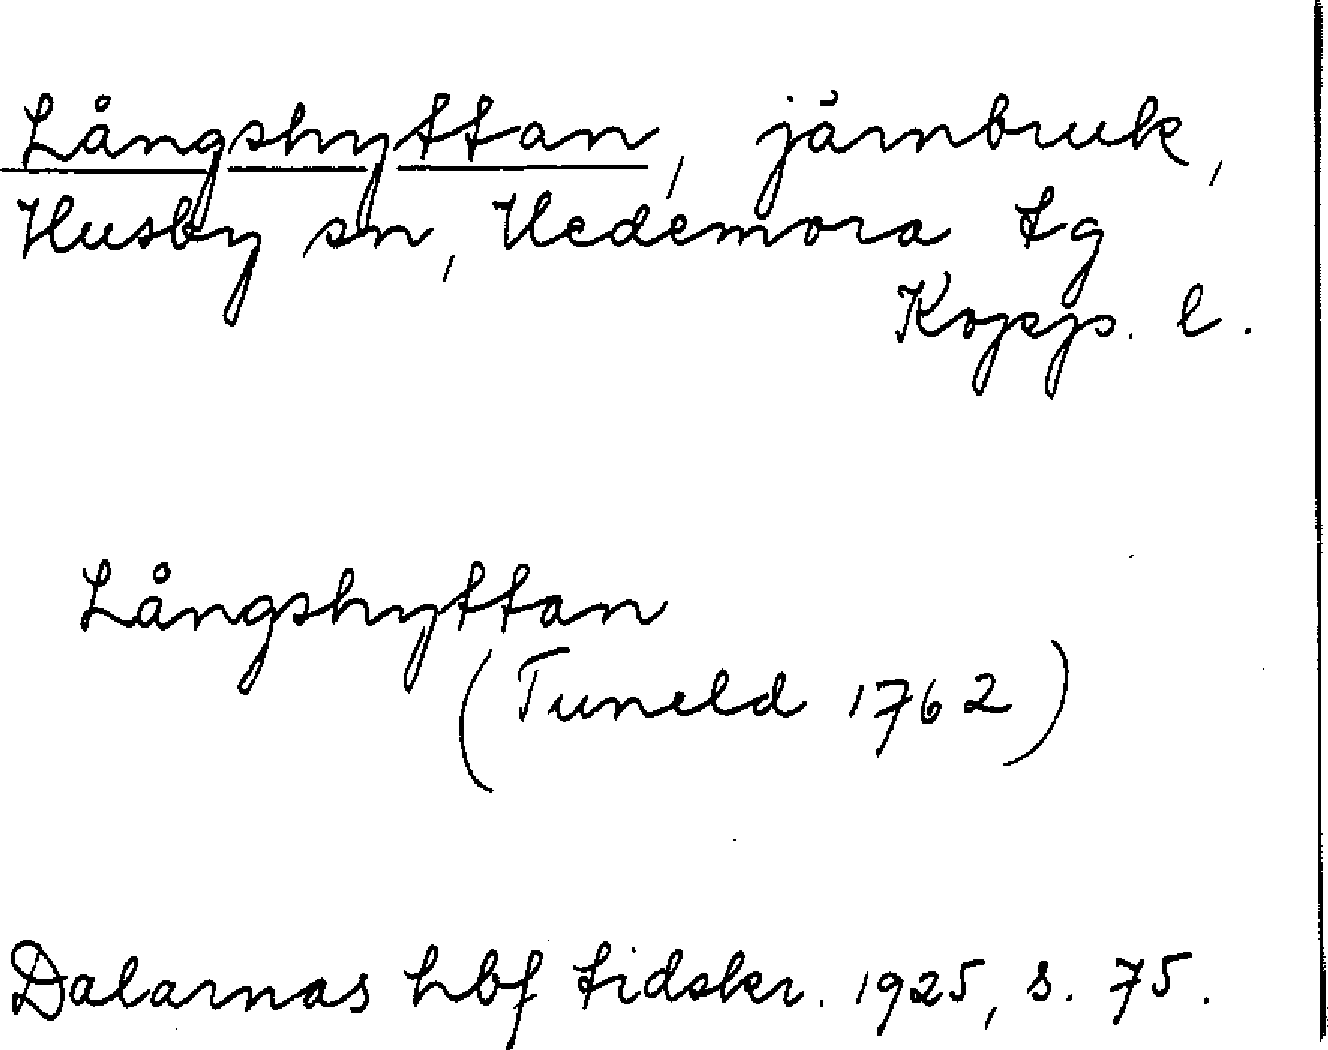 Långshyttan, järnbruk,
Husby sn, Hedemora tg
Kopp. l.
Långshyttan
(Tuneld 1762)
Dalarnas hbf tidskr. 1925, s. 75.